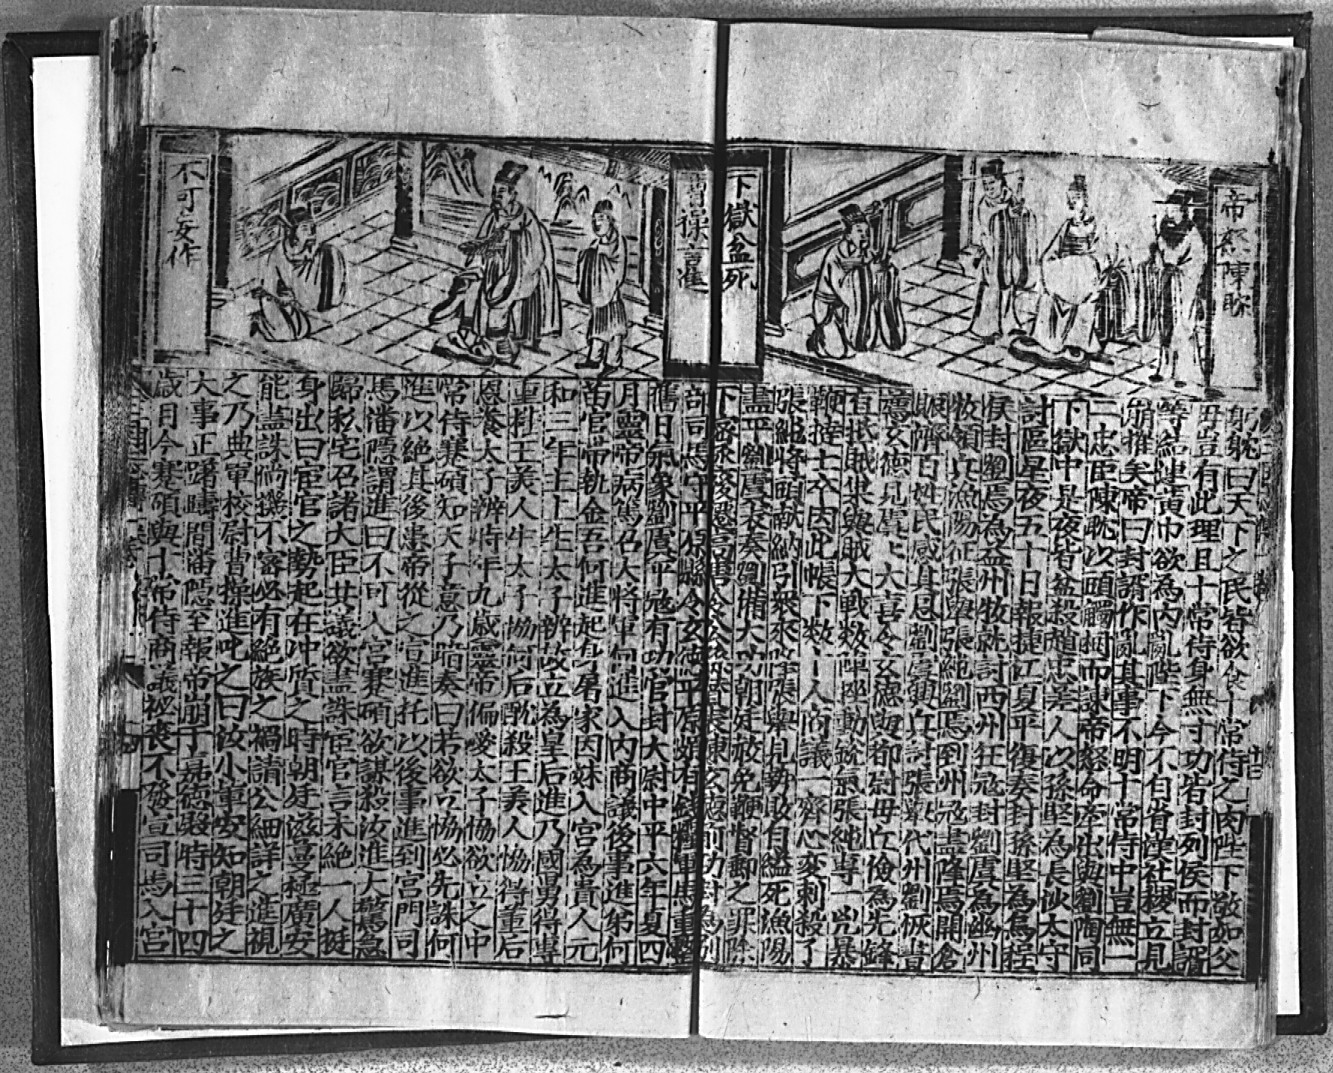 帝怒陳耽
下獄盆死
躬耽曰天下之民皆欲食十常侍之肉陛下敬如父
母豈有此理且十常侍身無寸功皆封列侯而封諝
等結連黃巾欲為內亂陛下今不自省漢社稷立見
崩摧矣帝曰封諝作亂其事不明十常侍中豈無一
二忠臣陳耽以頭觸堦而諫帝怒命牽出與劉陶同
下獄中是夜皆盆殺趙忠差人以孫堅為長沙太守
討區星夜五十日報捷江夏平復奏封孫堅為烏程
侯封劉焉為益州牧就討西州狂寇封劉虞為幽州
牧領兵漁陽征張舉張純劉焉到州寇盡降焉開倉
賑濟百姓民感其恩劉虞領兵討張舉代州劉恢書
薦玄德見虞上大喜令玄德與都尉毋丘儉為先鋒
直抵賊巢與賊大戰數陣挫動銳氣張純專一兇暴
鞭撻士卒因此帳下數十人商議一齊心変刺殺了
張純將頭獻納引衆來降張舉見勢敗自縊死漁陽
盡平劉虞表奏劉備大功朝廷赦免鞭督郵之罪除
下密丞
尚司馬守平原縣令玄德平原頗有錢粮軍馬重整
舊日氣象劉虞平寇有功官封大尉中平六年夏四
月靈帝病篤召大將軍何進入內商議後事進弟何
苗官帶執金吾何進起身屠家因妹入宮為貴人元
和三年上上生太子辨故立為皇后進乃國舅得專
重權王美人生太子恊何后酖殺王美人恊得董后
恩養太子辨時年九歲靈帝偏愛太子恊欲立之中
常侍蹇碩知天子意乃暗奏曰若欲立恊必先誅何
進以絕其後患帝從之宣進托以後事進到宮門司
馬潘隱謂進曰不可入宮蹇碩欲謀殺汝進大驚急
歸私宅召諸大臣共議欲盡誅宦官言未絕一人挺
身出曰宦官之勢起在冲質之時朝廷滋蔓極廣安
能盡誅倘機不審必有絕族之禍請公細詳之進視
之乃典軍校尉曹操進叱之曰汝小軍安知朝廷之
大事正躊躇間潘隱至報帝崩于嘉德殿時三十四
歲目今蹇碩與十常侍商議秘喪不發宣司馬入宮
曹操言進
不可妄作